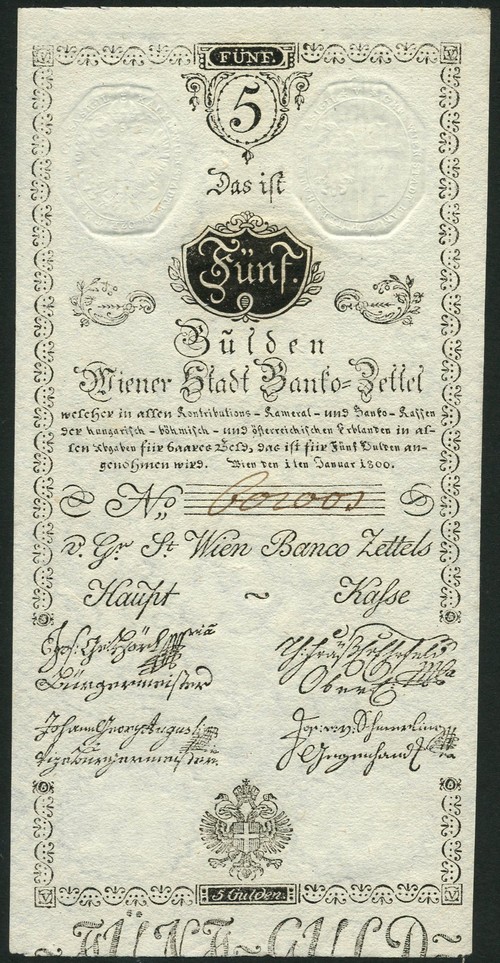 V FÜNF. V
5
Das ist
Fünf.
Gulden
Wiener Stadt Banko-Zettel
welcher in allen Kontributions- Kameral- und Banko-Kassen
der hungarisch- böhmisch- und österreichischen Erblanden in al-
len Abgaben für baares Geld, das ist für Fünf Gulden an-
genohmen wird. Wien den 1ten Januar 1800.
No,,
v. Gr St Wien Banco Zettels
Haupt ~ Kasse
Bürgermeister Oberst
Johann Georg Augusti Jos: v. v. Schmerling
Vizebürgermeister Gegenhandl
V 5 Gulden. V
FÜNF GULD